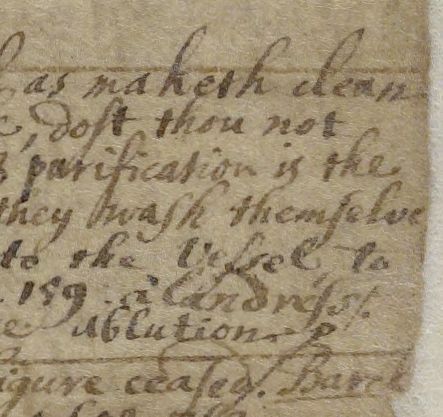 as maketh clean
, dost thou not
purification is the
they wash themselve
to the Vessel, to
159. a Landress.
ablution
figure ceased. Barck